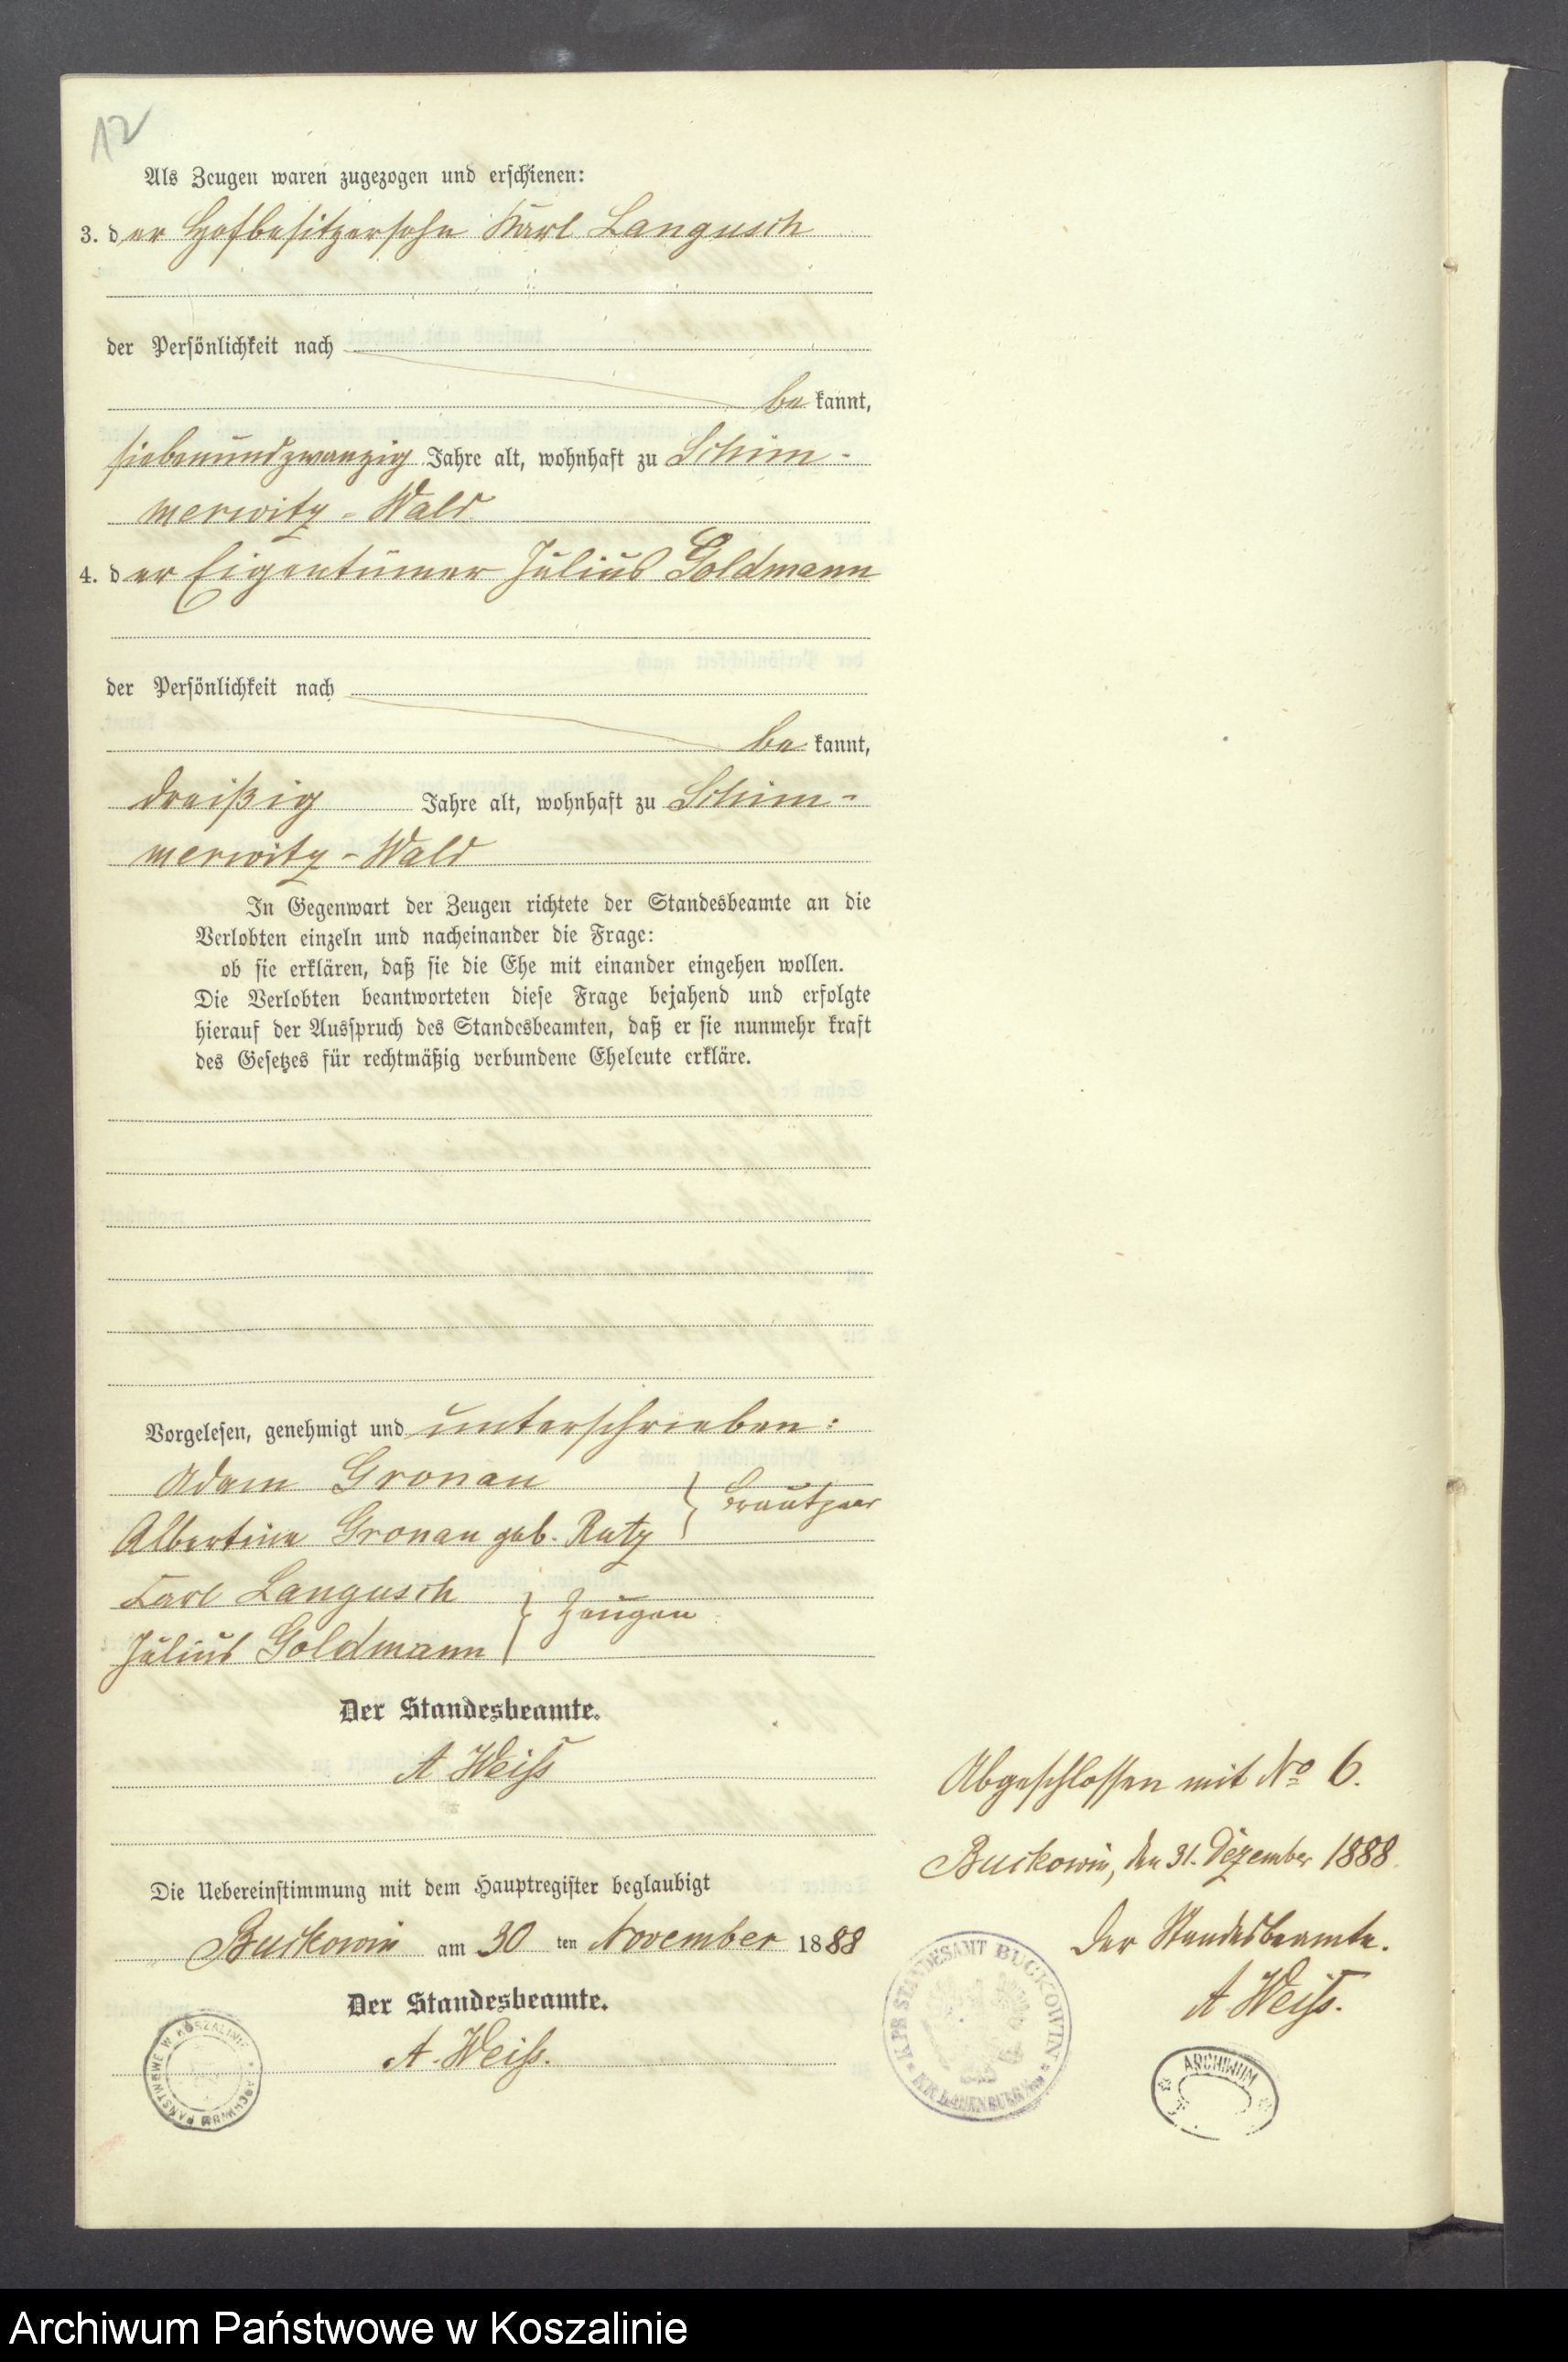 12
Als Zeugen waren zugezogen und erschienen:
3. der Hofbesitzersohn Karl Langusch
der Persönlichkeit nach
be kannt,
siebenundzwanzig Jahre alt, wohnhaft zu Schim-
merwitz - Wald
4. der Eigentümer Julius Goldmann
der Persönlichkeit nach
be kannt,
dreißig Jahre alt, wohnhaft zu Schim-
merwitz - Wald
In Gegenwart der Zeugen richtete der Standesbeamte an die
Verlobten einzeln und nacheinander die Frage:
ob sie erklären, daß sie die Ehe mit einander eingehen wollen.
Die Verlobten beantworteten diese Frage bejahend und erfolgte
hierauf der Ausspruch des Standesbeamten, daß er sie nunmehr kraft
des Gesetzes für rechtmäßig verbundene Eheleute erkläre.
Vorgelesen, genehmigt und unterschrieben:
Adam Gronau
Albertine Gronau geb. Ratz } Brautpaar
Karl Langusch
Julius Goldmann } Zeugen
Der Standesbeamte.
A Weiß
Die Uebereinstimmung mit dem Hauptregister beglaubigt
Buckowin am 30 ten November 1888
Der Standesbeamte.
A. Weiß.
Abgeschlossen mit No 6.
Buckowin, den 31. Dezember 1888.
Der Standesbeamte.
A Weiß.
K. PR. STANDESAMT BUCKOWIN * KR. LAUENBURG
ARCHIWUM PAŃSTWOWE W KOSZALINIE
ARCHIWUM
Archiwum Państwowe w Koszalinie